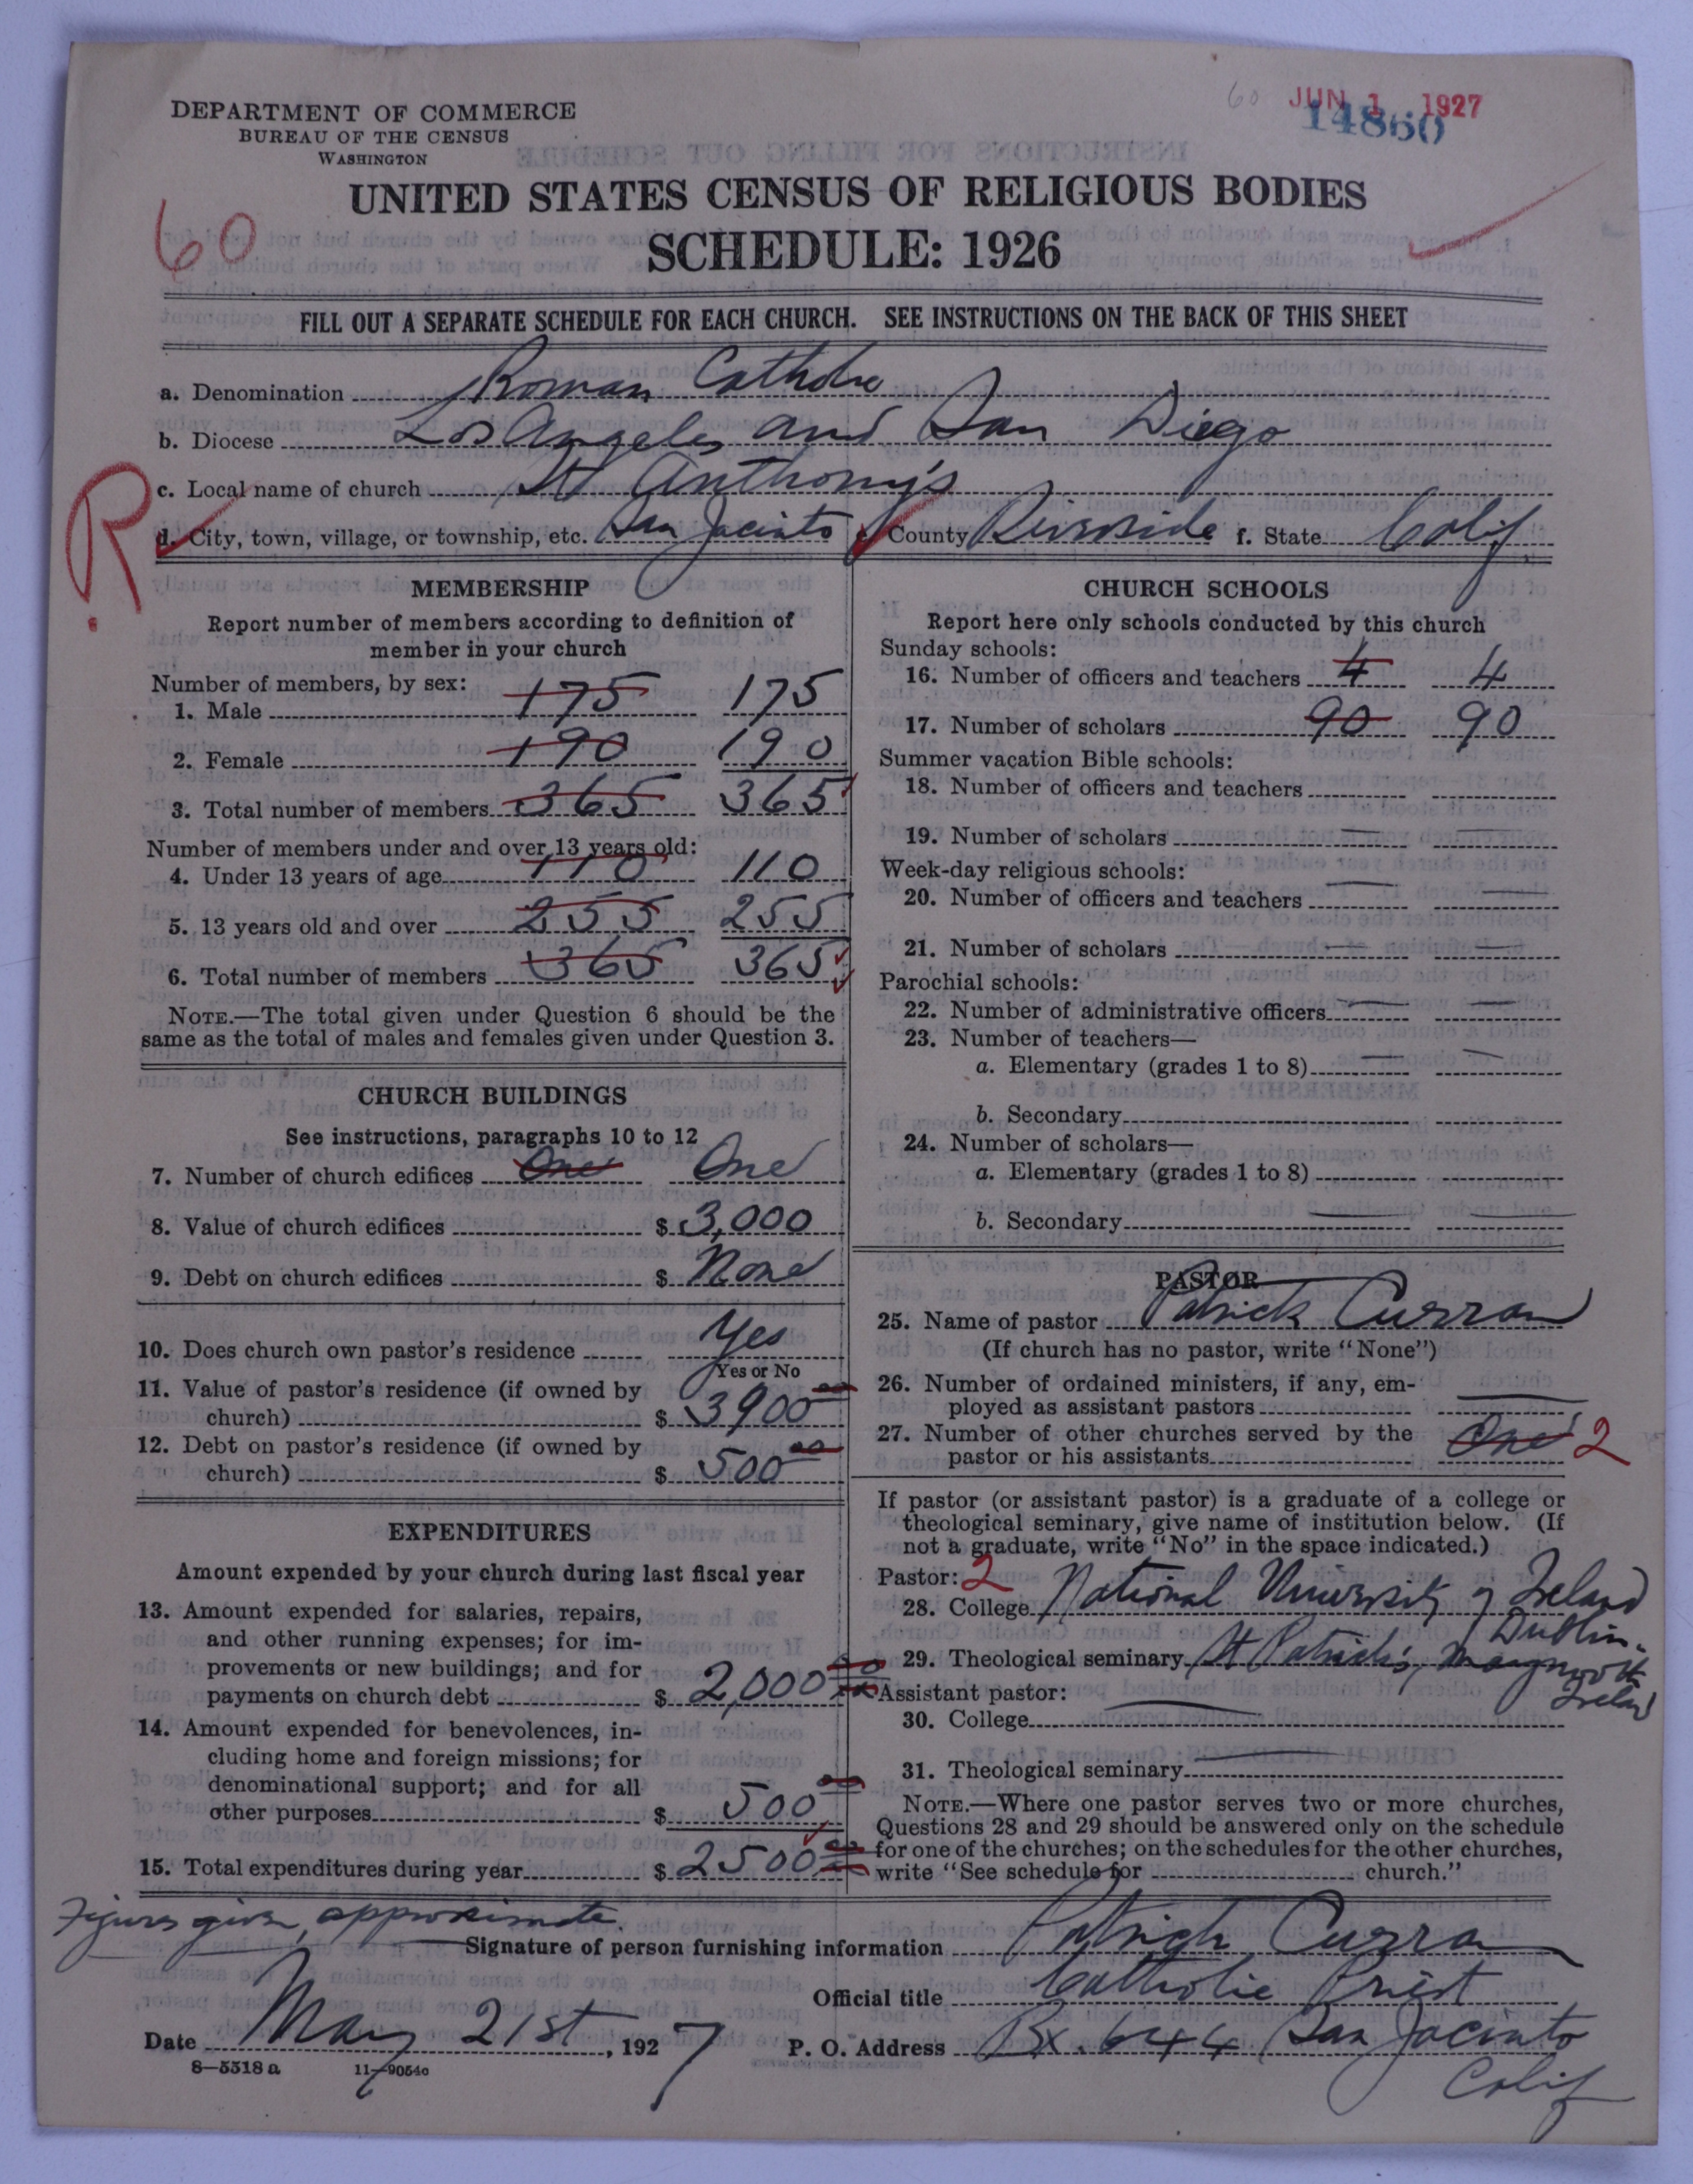 60 JUN 1 1927
14860
DEPARTMENT OF COMMERCE
BUREAU OF THE CENSUS
WASHINGTON
UNITED STATES CENSUS OF RELIGIOUS BODIES
60
SCHEDULE: 1926
FILL OUT A SEPARATE SCHEDULE FOR EACH CHURCH. SEE INSTRUCTIONS ON THE BACK OF THIS SHEET
a. Denomination Roman Catholic
b. Diocese Los Angeles and San Diego
c. Local name of church St Anthony's
R
d. City, town, village, or township, etc. San Jacinto County Riverside f. State Calif
MEMBERSHIP
Report number of members according to definition of
member in your church
Number of members, by sex:
1. Male 175 175
2. Female 190 190
3. Total number of members 365 365
Number of members under and over 13 years old:
4. Under 13 years of age 110 110
5. 13 years old and over 255 255
6. Total number of members 365 365
NOTE.—The total given under Question 6 should be the
same as the total of males and females given under Question 3.
CHURCH BUILDINGS
See instructions, paragraphs 10 to 12
7. Number of church edifices One One
8. Value of church edifices $ 3,000
9. Debt on church edifices $ None
10. Does church own pastor's residence Yes
Yes or No
11. Value of pastor's residence (if owned by
church) $ 3900 00
12. Debt on pastor's residence (if owned by
church) $ 500 00
EXPENDITURES
Amount expended by your church during last fiscal year
13. Amount expended for salaries, repairs,
and other running expenses; for im-
provements or new buildings; and for
payments on church debt $ 2,000 00
14. Amount expended for benevolences, in-
cluding home and foreign missions; for
denominational support; and for all
other purposes $ 500 00
15. Total expenditures during year $ 2500 00
CHURCH SCHOOLS
Report here only schools conducted by this church
Sunday schools:
16. Number of officers and teachers 4 4
17. Number of scholars 90 90
Summer vacation Bible schools:
18. Number of officers and teachers
19. Number of scholars
Week-day religious schools:
20. Number of officers and teachers
21. Number of scholars
Parochial schools:
22. Number of administrative officers
23. Number of teachers—
a. Elementary (grades 1 to 8)
b. Secondary
24. Number of scholars—
a. Elementary (grades 1 to 8)
b. Secondary
PASTOR
25. Name of pastor Patrick Curran
(If church has no pastor, write "None")
26. Number of ordained ministers, if any, em-
ployed as assistant pastors
27. Number of other churches served by the
pastor or his assistants One 2
If pastor (or assistant pastor) is a graduate of a college or
theological seminary, give name of institution below. (If
not a graduate, write "No" in the space indicated.)
Pastor: 2
28. College National University of Ireland
Dublin.
29. Theological seminary St Patrick's, Maynooth
Ireland
Assistant pastor:
30. College
31. Theological seminary
NOTE.—Where one pastor serves two or more churches,
Questions 28 and 29 should be answered only on the schedule
for one of the churches; on the schedules for the other churches,
write "See schedule for church."
Figures given, approximate.
Signature of person furnishing information Patrick Curran
Official title Catholic Priest
Date May 21st, 1927 P. O. Address Bx. 644 San Jacinto
Calif
8—5518 a 11—9054c